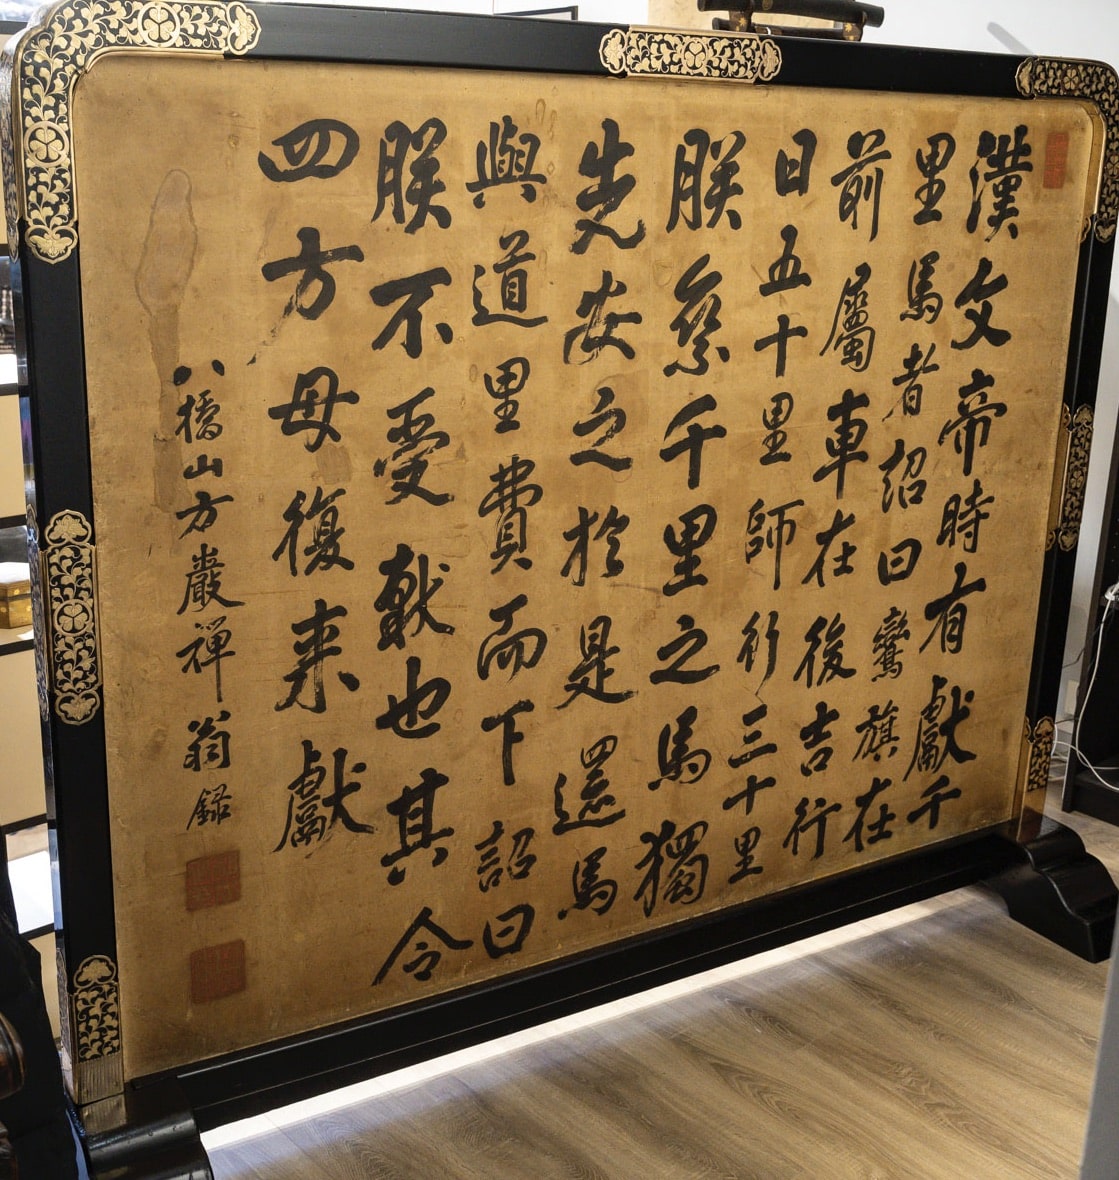 漢文帝時有獻千
里馬者詔曰鸞旗在
前屬車在後吉行
日五十里師行三十里
朕乘千里之馬獨
先安之於是還馬
與道里費而下詔曰
朕不受献也其令
四方母復来獻
八橋山方巖禅翁録